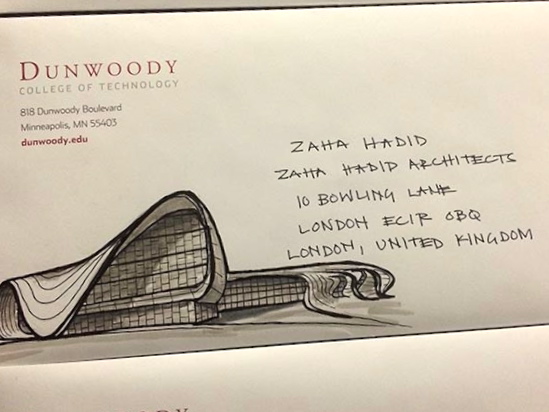 DUNWOODY
COLLEGE OF TECHNOLOGY
818 Dunwoody Boulevard
Minneapolis, MN 55403
dunwoody.edu
ZAHA HADID
ZAHA HADID ARCHITECTS
10 BOWLING LANE
LONDON EC1R 0BQ
LONDON, UNITED KINGDOM